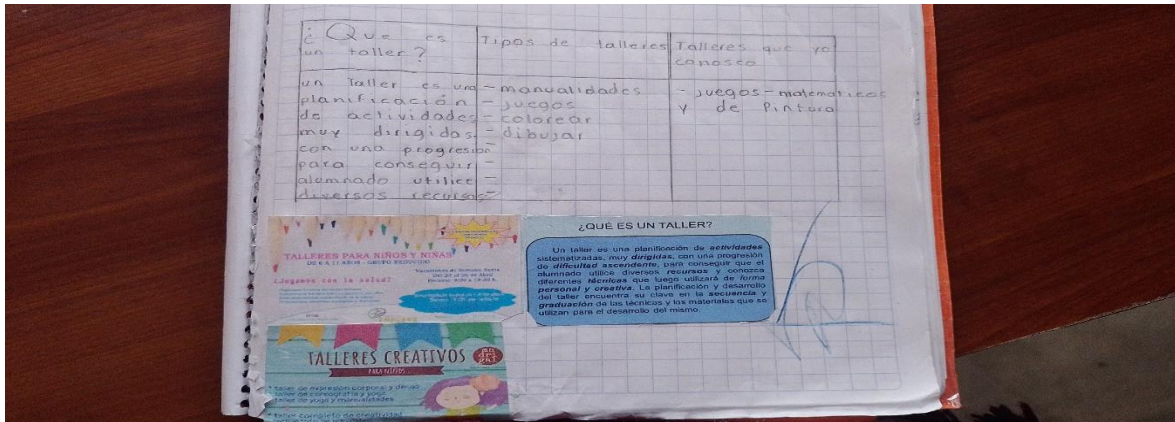 ¿Que es
un taller?
Tipos de talleres
Talleres que yo
conosco
un Taller es una
planificación
de actividades
muy dirigidas
con una progresion
para conseguir
alumnado utilice
diversos recursos
- manualidades
- juegos
- colorear
- dibujar
- juegos - matematicos
y de Pintura
TALLERES PARA NIÑOS Y NIÑAS
DE 6 A 11 AÑOS - GRUPO REDUCIDO
¡Jugamos con la salud!
TALLERES CREATIVOS
PARA NIÑOS
taller de expresión corporal y dibujo
taller de coreografía y yoga
taller de yoga y manualidades
taller completo de creatividad
¿QUÉ ES UN TALLER?
Un taller es una planificación de actividades
sistematizadas, muy dirigidas, con una progresión
de dificultad ascendente, para conseguir que el
alumnado utilice diversos recursos y conozca
diferentes técnicas que luego utilizará de forma
personal y creativa. La planificación y desarrollo
del taller encuentra su clave en la secuencia y
graduación de las técnicas y los materiales que se
utilizan para el desarrollo del mismo.